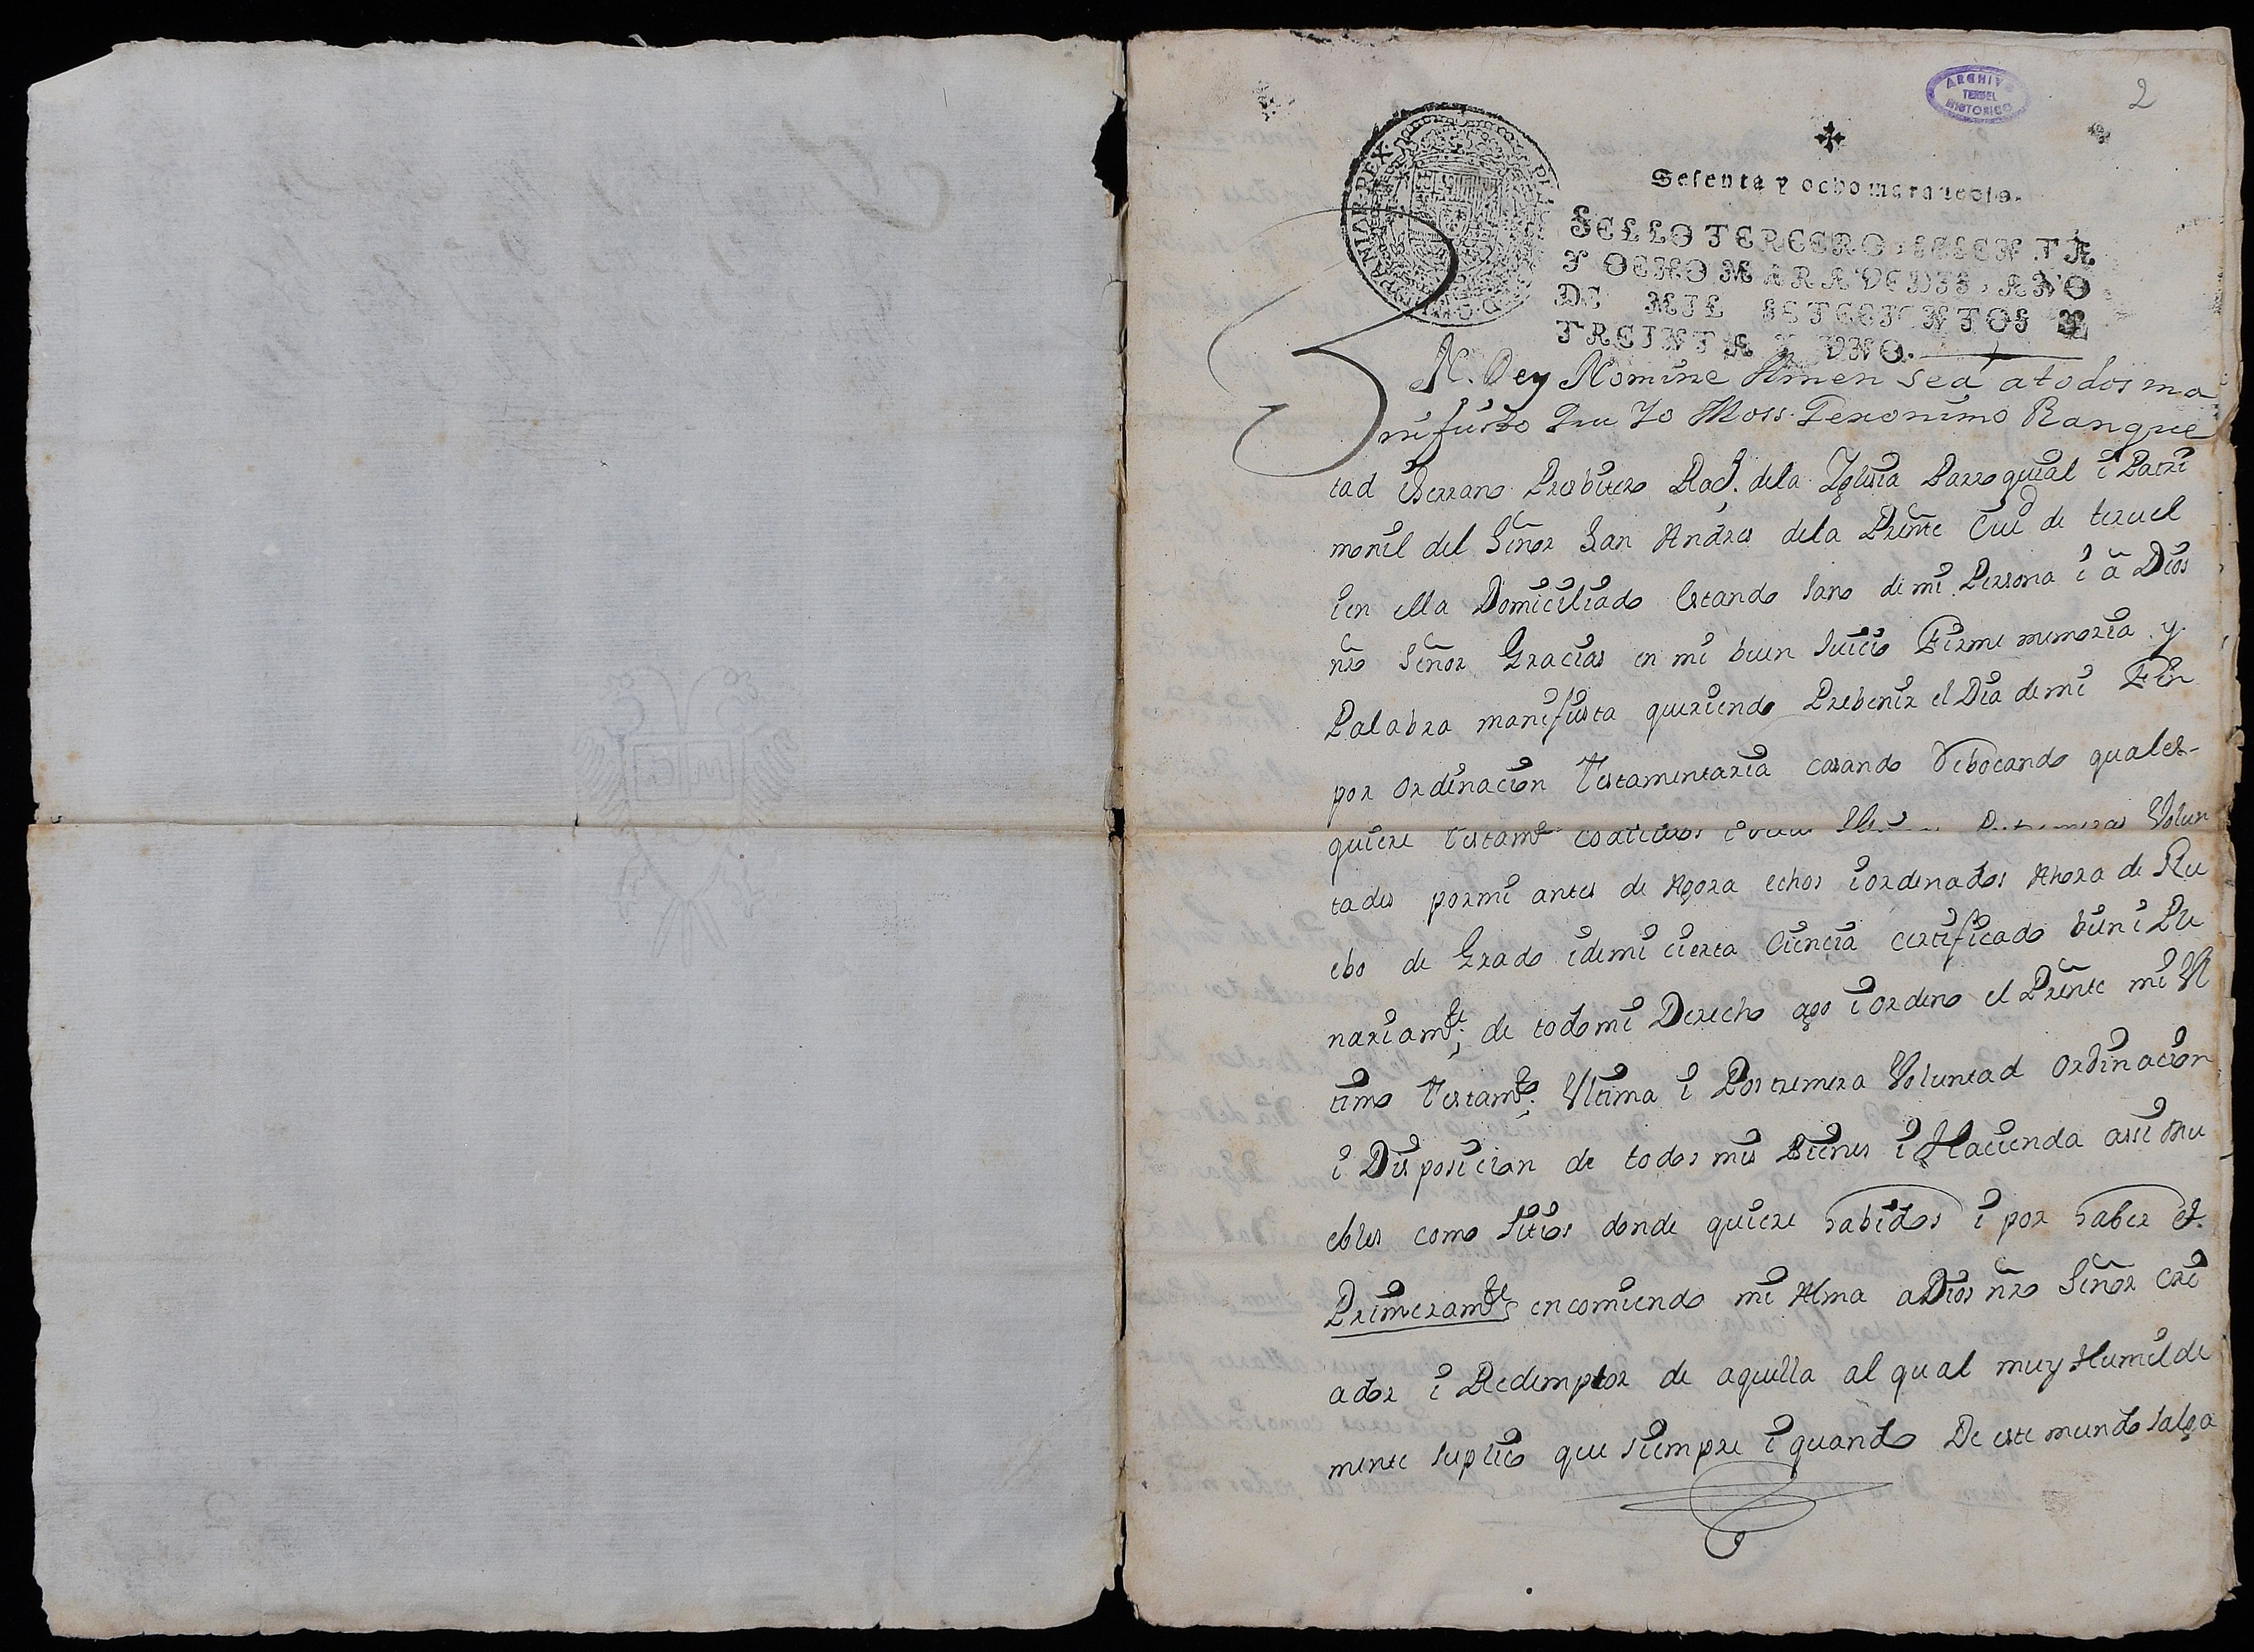 ARCHIVO
TERUEL
HISTORICO
2
Sesenta y ocho marauedis.
SELLO TERCERO, SESENTA
Y OCHO MARAVEDIS, AÑO
DE MIL SETECIENTOS Y
TREINTA Y VNO.
IN. Dey Nomine Amen sea atodos ma
nifiesto Que Yo Moss. Geronimo Ranque
tad iserrano Presbitero Rac. dela Yglesia Parroquial i Patri
monil del Señor San Andres dela Prente Ciud de teruel
ien ella Domiciliado Estando sano de mi Persona i ā Dios
nr̃o Señor Gracias en mi buen Juicio Firme memoria y
Palabra manifiesta queriendo Prebenir el Dia de mi Fin
por Ordinacion Testamentaria casando Rebocando quales-
quiere Testamtos Postrimeras Volun
tades pormi antes de Agora echos iordenados Ahora de Nu
ebo de Grado idemi cierta Ciencia certificado bien i Ple
nariamte; de todo mi Derecho ago iordeno el Prẽnte mi Vl
timo Testamto; Vltima i Postrimera Voluntad Ordinacion
i Disposicion de todos mis Bienes i Hacienda assi Mu
ebles como Sitios donde quiere habidos i por haber et.
Primeramte encomiendo mi Alma aDios nr̃o Señor Cri
ador i Redemptor de aquella al qual muy Humilde
mente suplico que siempre i quando De este mundo salga